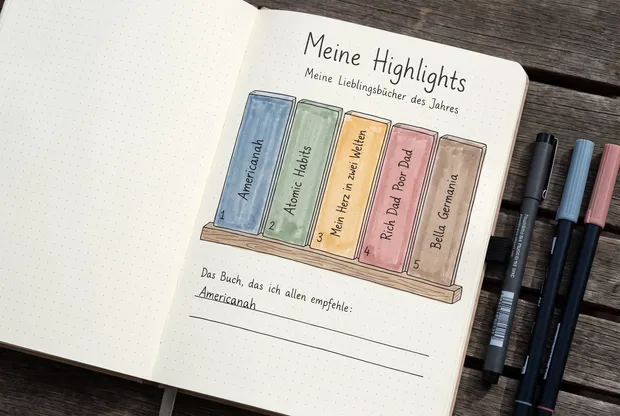 Meine Highlights
Meine Lieblingsbücher des Jahres
Americanah
1
Atomic Habits
2
Mein Herz in zwei Welten
3
Rich Dad Poor Dad
4
Bella Germania
5
Das Buch, das ich allen empfehle:
Americanah